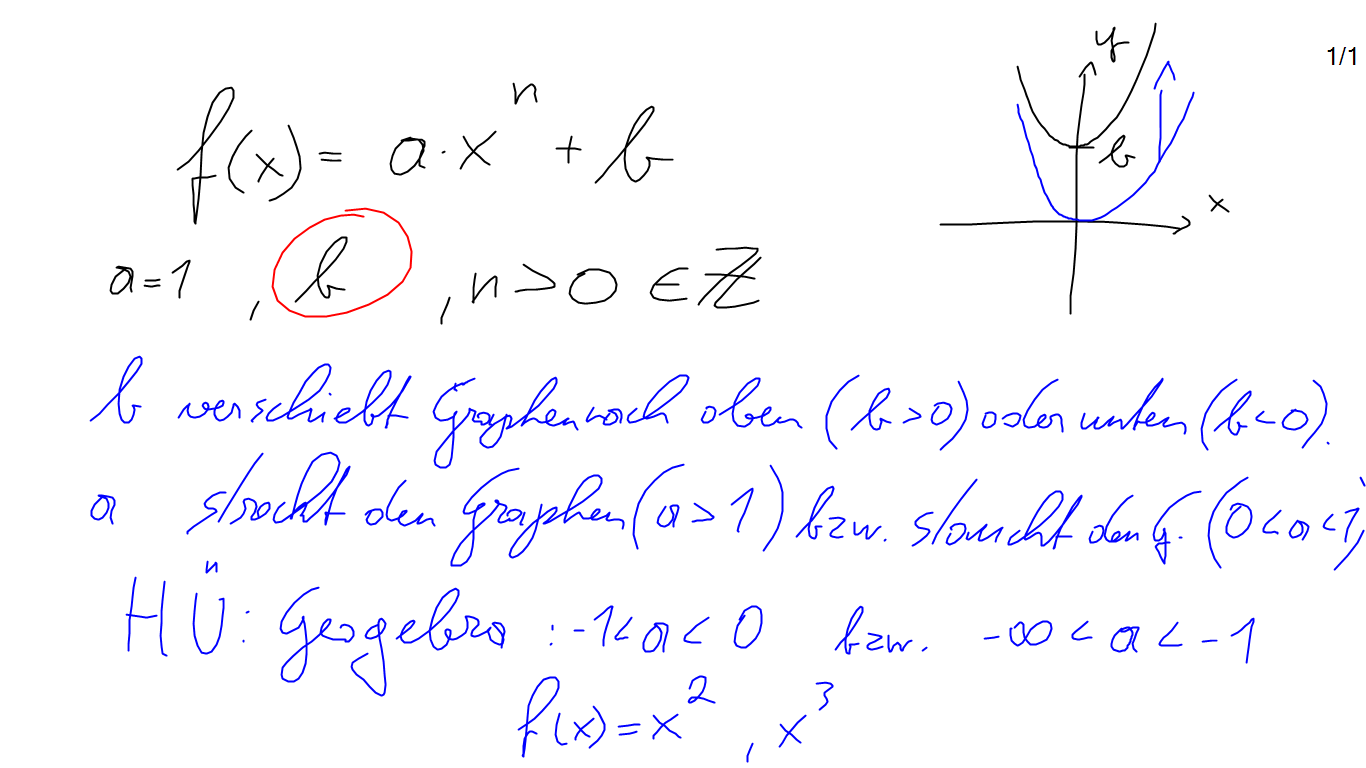 1/1
f(x) = a·x^n + b
y
b
x
a=1 , b , n>0 ∈ ℤ
b verschiebt Graphen nach oben (b>0) oder unten (b<0).
a streckt den Graphen (a>1) bzw. staucht den G. (0<a<1)
HÜ: Geogebra : -1<a<0 bzw. -∞<a<-1
f(x)=x² , x³